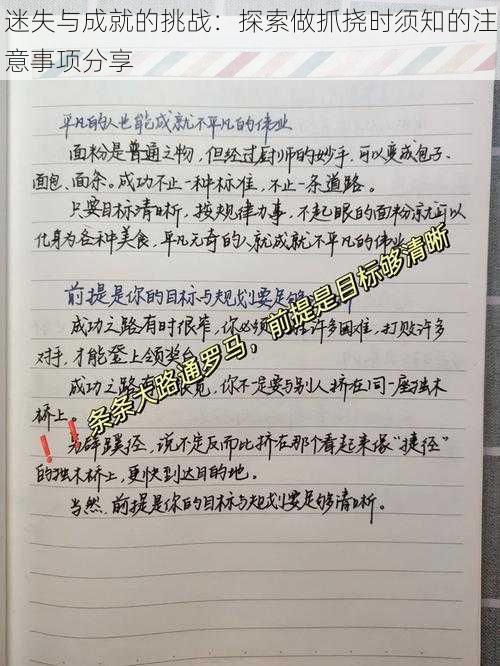 迷失与成就的挑战：探索做抓挠时须知的注
意事项分享
平凡的人也能成就不平凡的伟业
面粉是普通之物，但经过厨师的妙手，可以变成包子、
面包、面条。成功不止一种标准，不止一条道路。
只要目标清晰，按规律办事，不起眼的面粉就可以
化身为各种美食，平凡无奇的人就成就不平凡的伟业
前提是你的目标与规划要足够
成功之路有时很窄，你必须 许多困难，打败许多
对手，才能登上领奖台
成功之路 很宽，你不一定要与别人挤在同一座独木
桥上。
条条大路通罗马，前提是目标够清晰
另辟蹊径，说不定反而比挤在那个看起来像“捷径”
的独木桥上，更快到达目的地。
当然，前提是你的目标与规划要足够清晰。